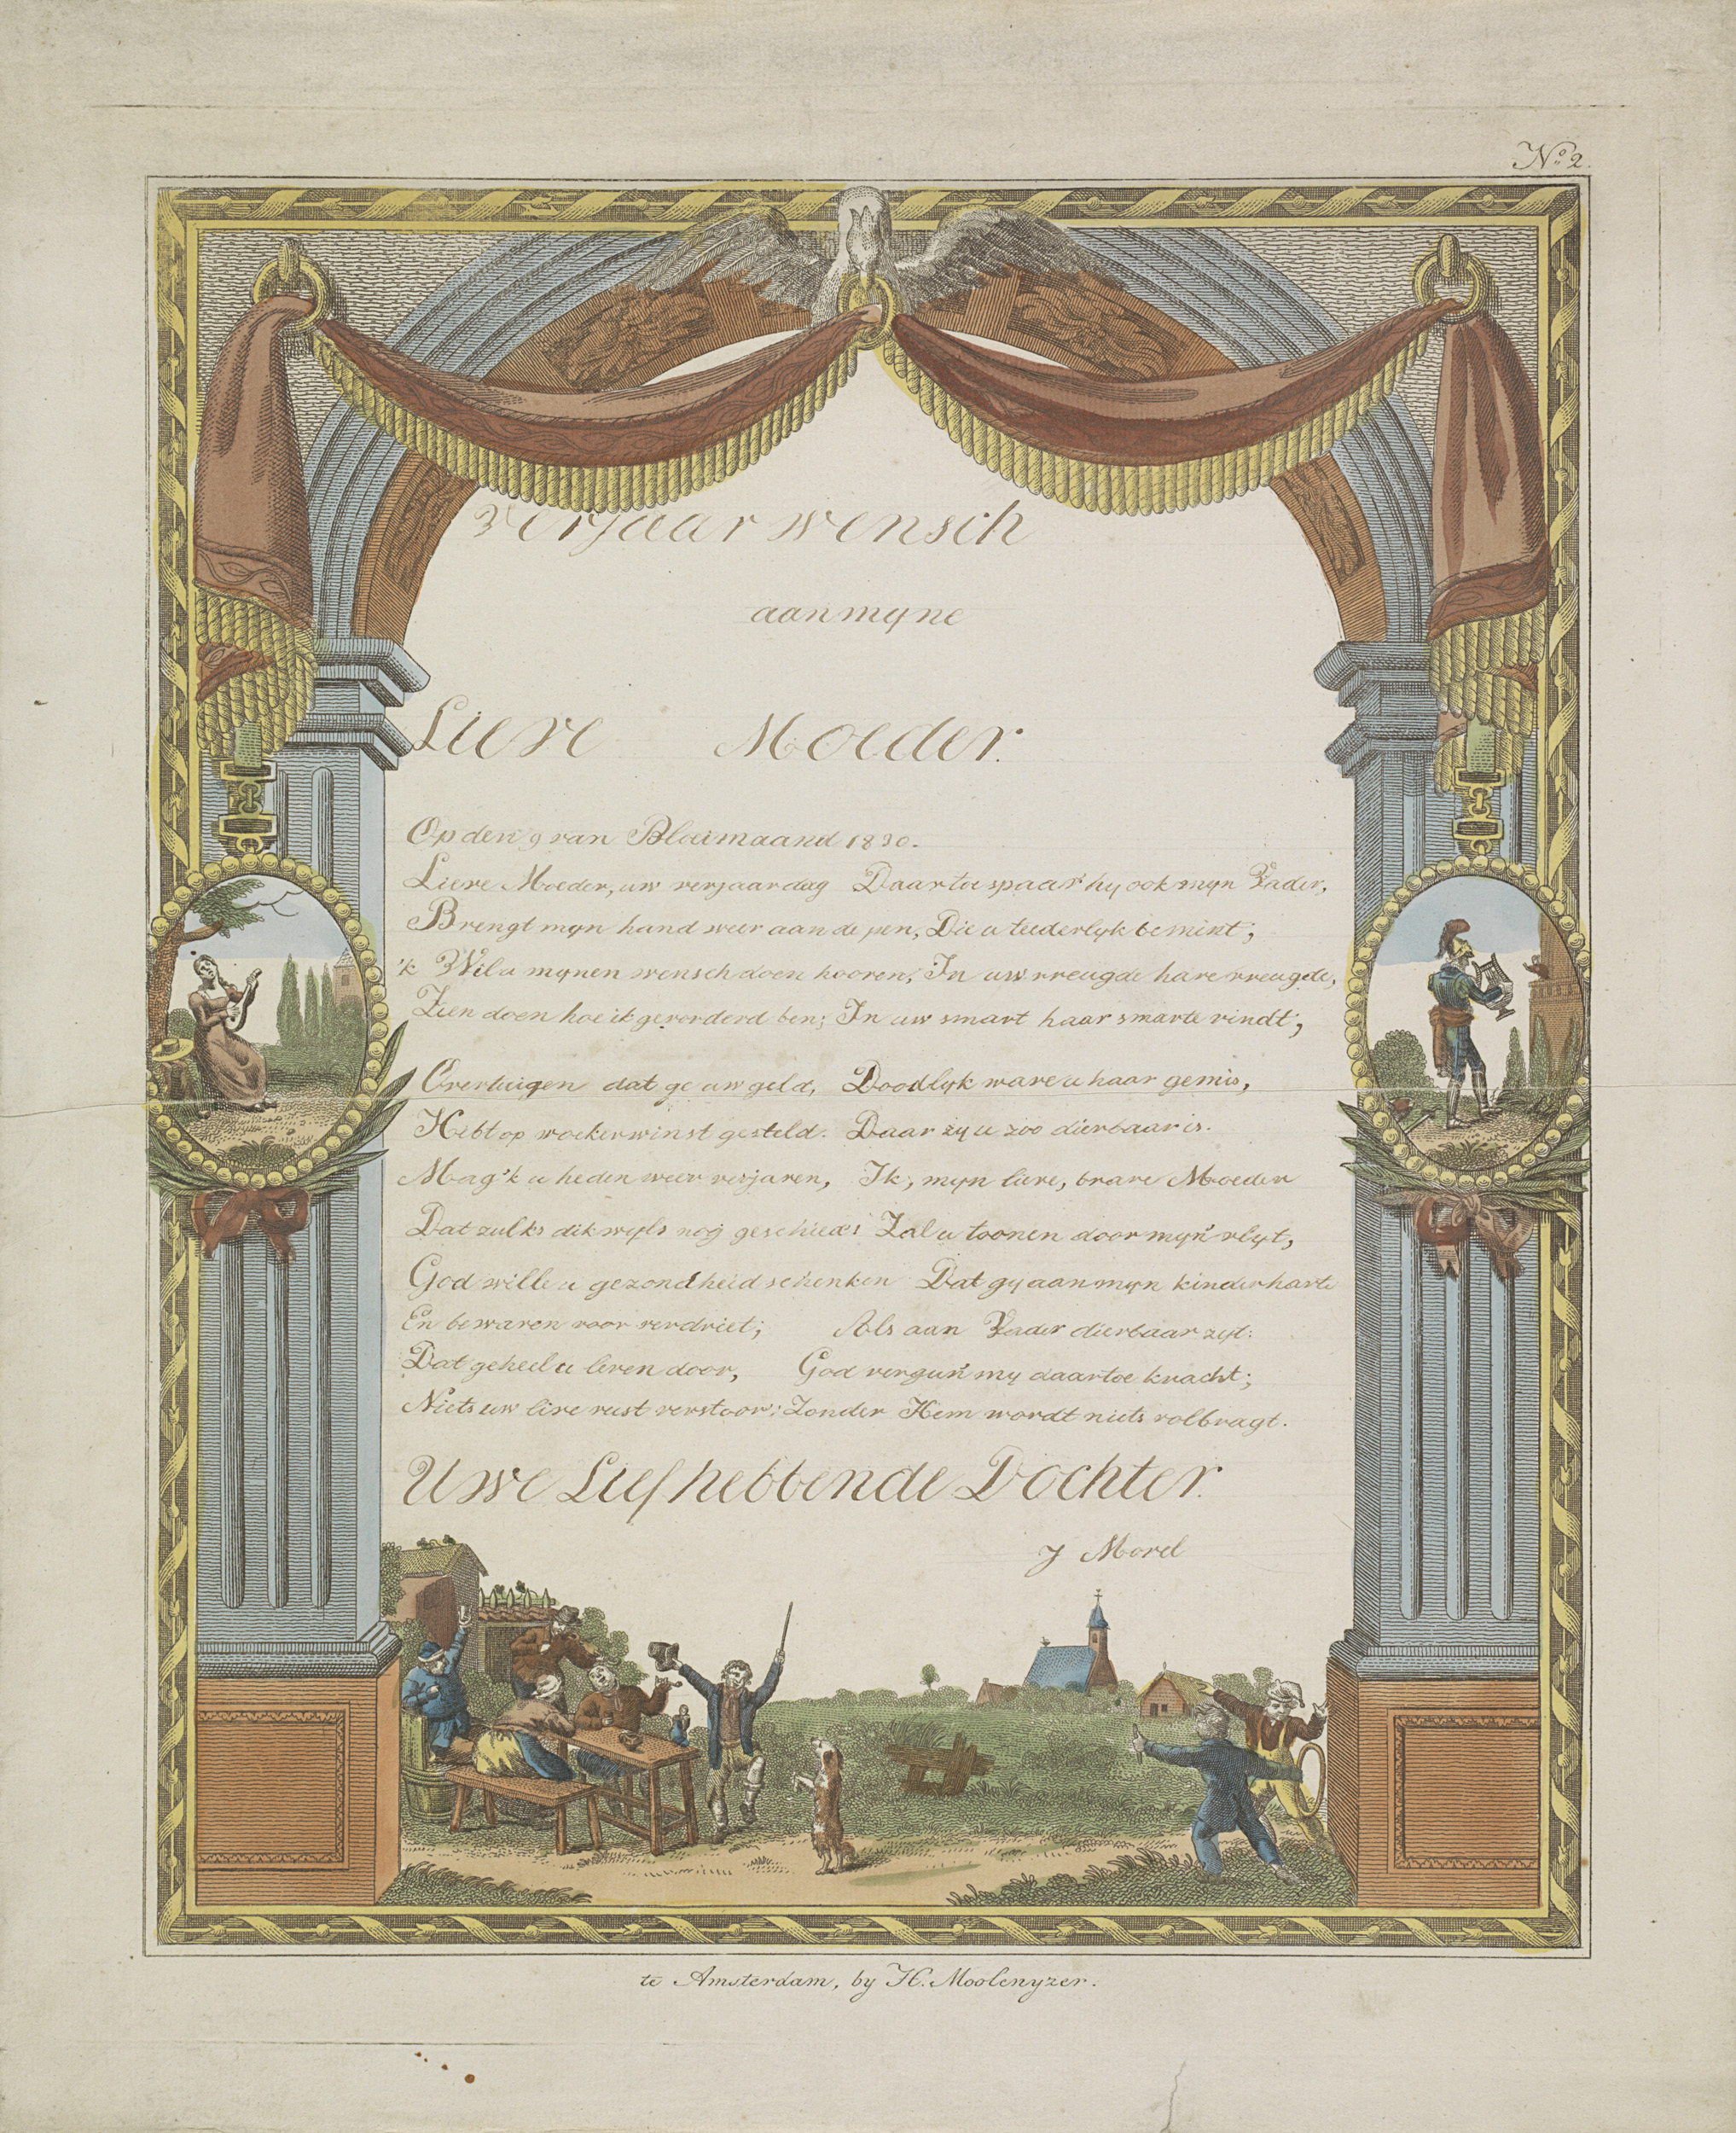 No. 2.
Verjaarwensch
aan myne
Lieve Moeder.
Op den 9 van Bloeimaand 1830.
Lieve Moeder, uw verjaardag Daartoe spaar' hy ook myn Vader,
Brengt myn hand weer aan de pen, Die u teederlyk bemint;
'k Wil u mynen wensch doen hooren, In uw vreugde hare vreugde,
Zien doen hoe ik gevorderd ben; In uw smart haar smarte vindt;
Overtuigen dat ge uw geld, Doodlyk ware u haar gemis,
Hebt op woekerwinst gesteld. Daar zy u zoo dierbaar is.
Mag 'k u heden weer verjaren, Ik, myn lieve, brave Moeder
Dat zulks dikwyls nog geschied! Zal u toonen door myn vlyt,
God wille u gezondheid schenken Dat gy aan myn kinderharte
En bewaren voor verdriet; Als aan Vader dierbaar zyt:
Dat geheel u leven door, God vergun' my daartoe kracht;
Niets uw lieve rust verstoor: Zonder Hem wordt niets volbragt.
Uwe Liefhebbende Dochter.
J Morel
te Amsterdam, by H. Moolenyzer.